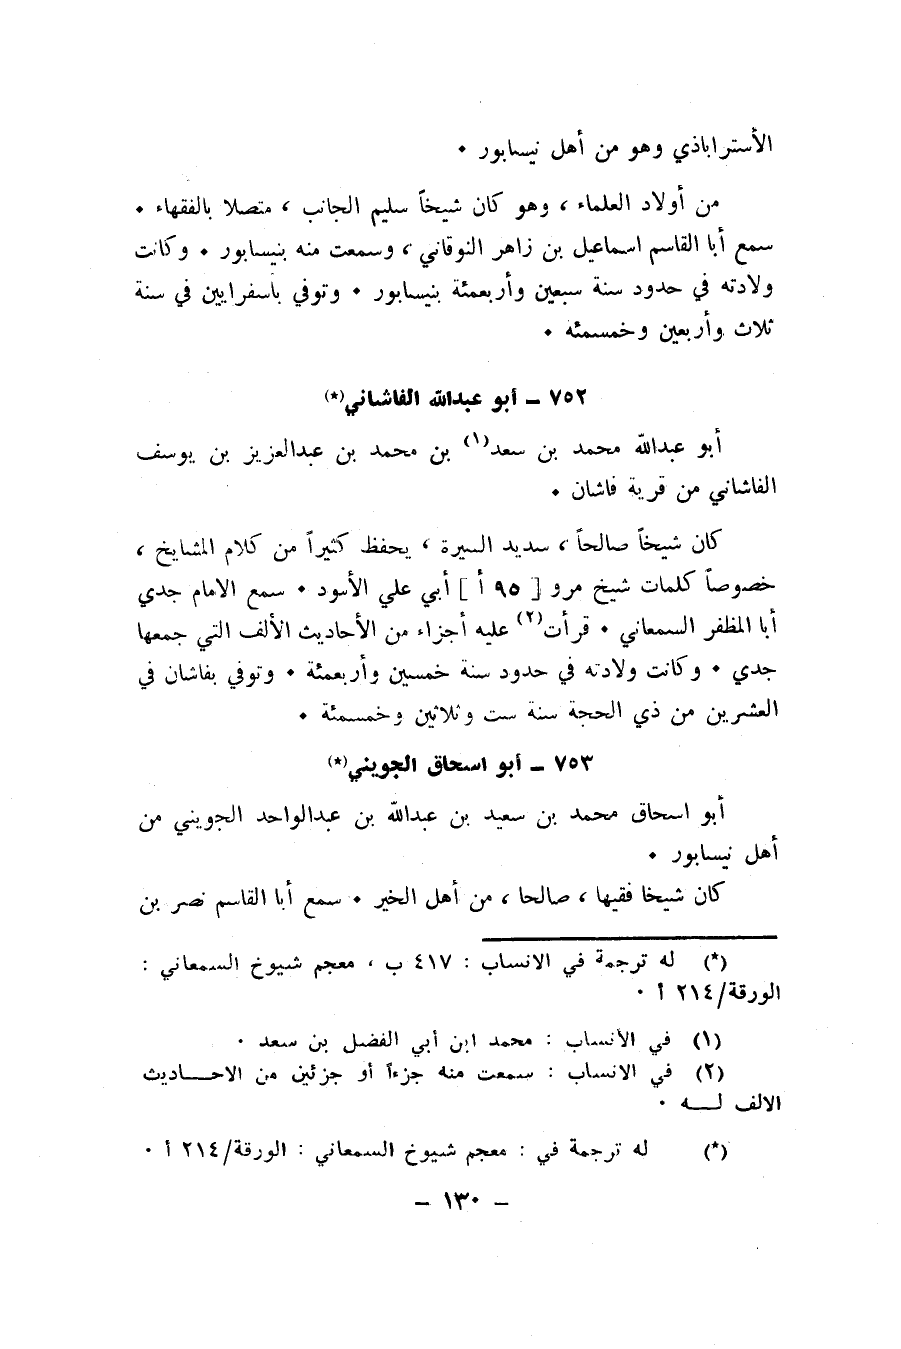 الأستراباذي وهو من أهل نيسابور ٠
من أولاد العلماء ، وهو كان شيخاً سليم الجانب ، متصلا بالفقهاء ٠
سمع أبا القاسم اسماعيل بن زاهر النوقاني ، وسمعت منه بنيسابور ٠ وكانت
ولادته في حدود سنة سبعين وأربعمئة بنيسابور ٠ وتوفي باسفرايين في سنة
ثلاث وأربعين وخمسمئة ٠
٧٥٢ ــ أبو عبدالله الفاشاني(*)
أبو عبدالله محمد بن سعد(١) بن محمد بن عبدالعزيز بن يوسف
الفاشاني من قرية فاشان ٠
كان شيخاً صالحاً ، سديد السيرة ، يحفظ كثيراً من كلام المشايخ ،
خصوصاً كلمات شيخ مرو [ ٩٥ أ ] أبي علي الأسود ٠ سمع الامام جدي
أبا المظفر السمعاني ٠ قرأت(٢) عليه أجزاء من الأحاديث الألف التي جمعها
جدي ٠ وكانت ولادته في حدود سنة خمسين وأربعمئة ٠ وتوفي بفاشان في
العشرين من ذي الحجة سنة ست وثلاثين وخمسمئة ٠
٧٥٣ ــ أبو اسحاق الجويني(*)
أبو اسحاق محمد بن سعيد بن عبدالله بن عبدالواحد الجويني من
أهل نيسابور ٠
كان شيخا فقيها ، صالحا ، من أهل الخير ٠ سمع أبا القاسم نصر بن
(*) له ترجمة في الانساب : ٤١٧ ب ، معجم شيوخ السمعاني :
الورقة/٢١٤ أ ٠
(١) في الأنساب : محمد ابن أبي الفضل بن سعد ٠
(٢) في الانساب : سمعت منه جزءاً أو جزئين من الاحــاديث
الالف لــه ٠
(*) له ترجمة في : معجم شيوخ السمعاني : الورقة/٢١٤ أ ٠
ــ ١٣٠ ــ